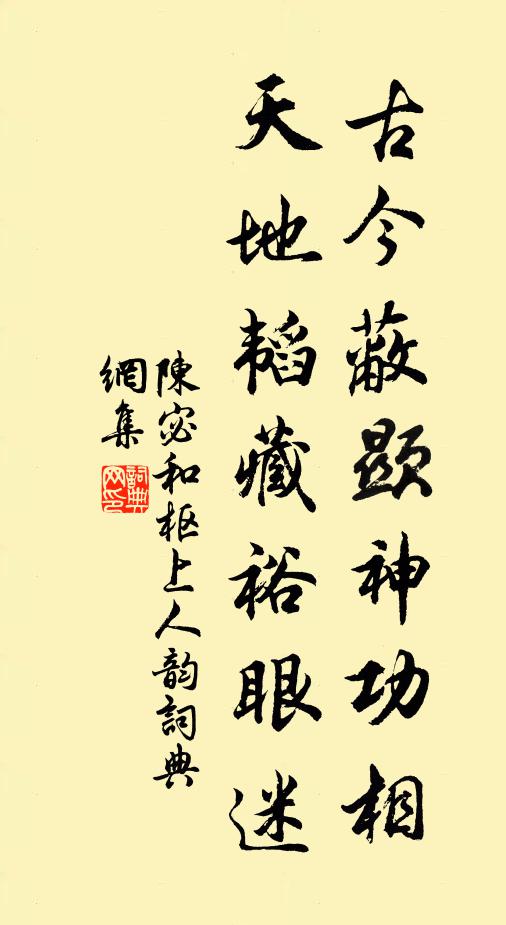 古今蔽顯神功相
天地韬藏裕眼迷
陳宓和枢上人韵詞典
網集
詞典
网印